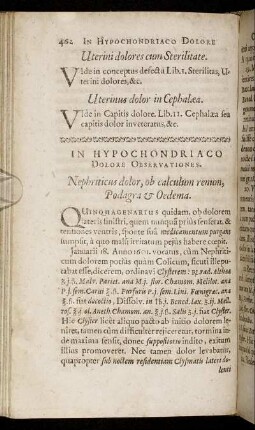 462 IN HYPOCHONDRIACO DOLORE
Uterini dolores cum Sterilitate.
VIde in conceptus defectu Lib.1. Sterilitas, U-
terini dolores, &c.
Uterinus dolor in Cephalæa.
VIde in Capitis dolore. Lib.11. Cephalæa seu
capitis dolor inveteratus, &c.
IN HYPOCHONDRIACO
DOLORE OBSERVATIONES.
Nephriticus dolor, ob calculum renum,
Podagra & Oedema.
QUINQUAGENARIUS quidam, ob dolorem
lateris sinistri, quem nunquam prius senserat, &
tentiones ventris, sponte sua medicamentum purgans
sumpsit, à quo malè irritatum pejus habere cœpit.
Januarii 18. Anno 1601. vocatus, cum Nephriti-
cum dolorem potius quam Colicum, sicuti illi
rebat esse, dicerem, ordinavi Clysterem: rad. Altheæ
Malv. Pariet. ana M.j. flor. Chamom. Melilot. ana
P.j. sem. Carui Fursuris p.j. sem. Lini. Fœnugræc. ana
fiat decoctio, Dissolv. in
Aneth. Chamom. an. Salis fiat Clyster.
Hic Clyster licet aliquo pacto ab initio dolorem le-
niret, tamen cum difficulter rejiceretur, tormina in-
de maxima sensit, donec suppositorio indito, exitum
illius promoveret. Nec tamen dolor levabatur,
quapropter sub noctem residentiam Clysmatis lateri do-
lenti